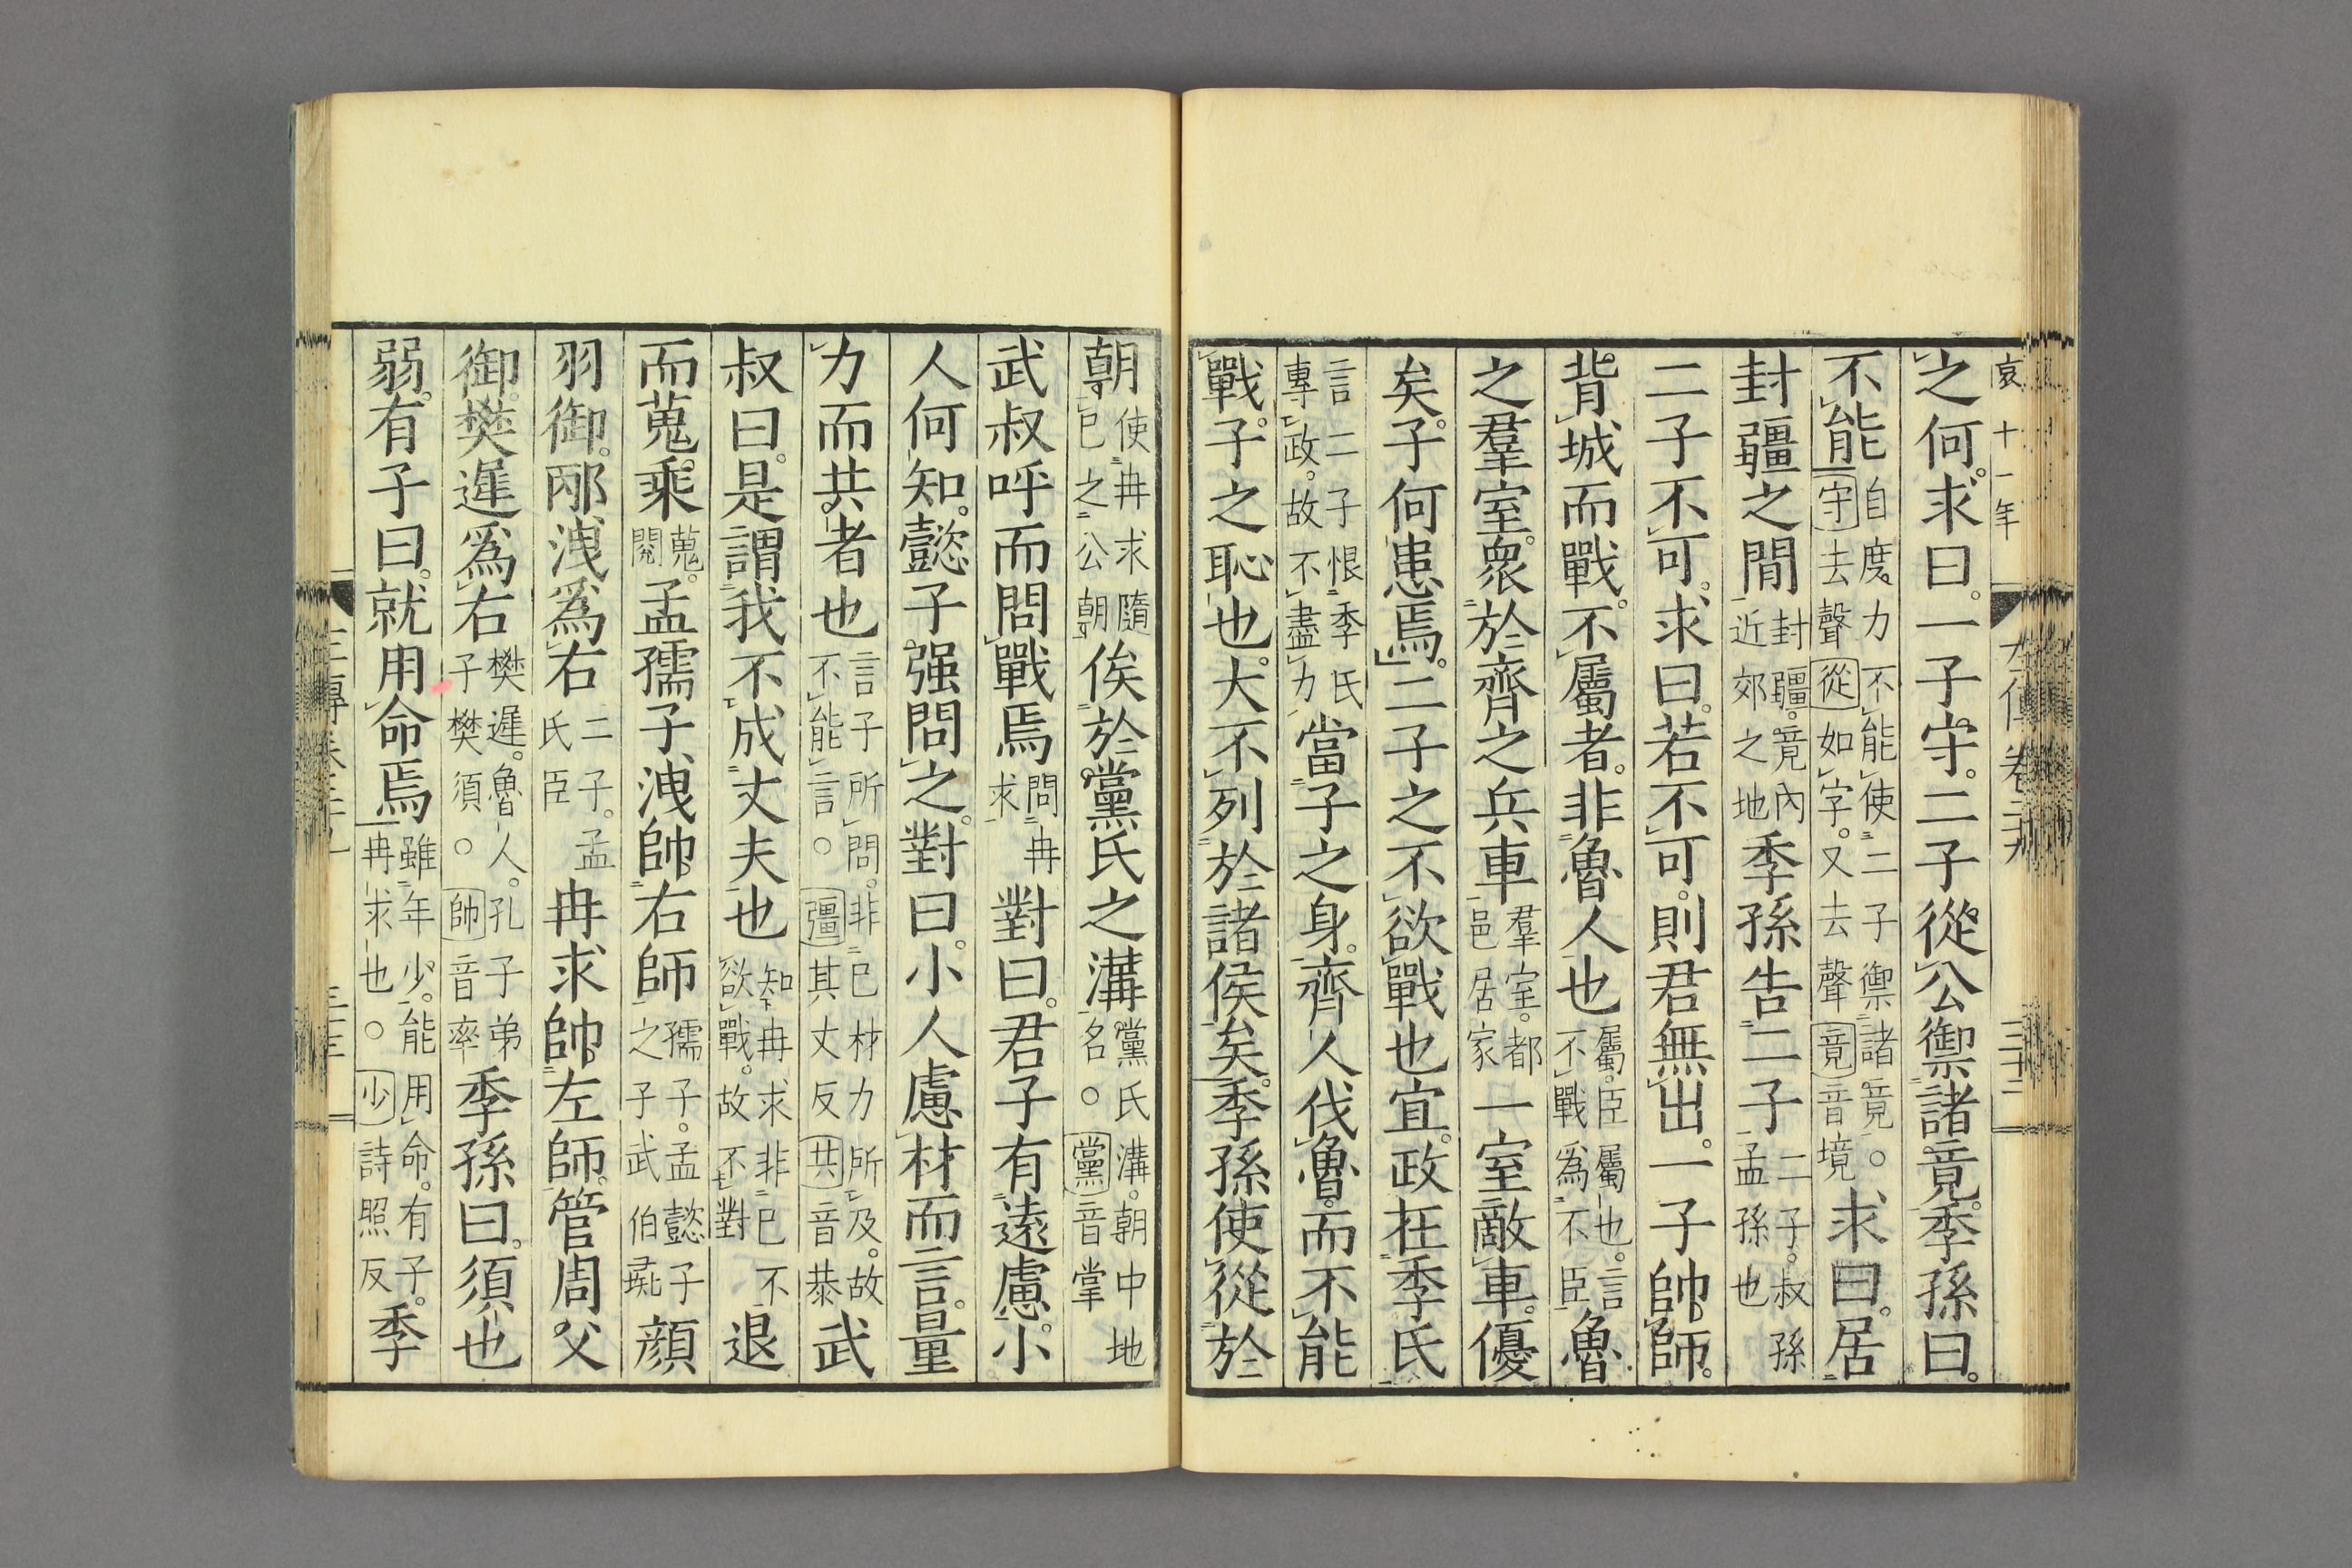 哀十一年
左傳卷二十九
三十二
之何。求曰。一子守。二子從公禦諸竟。季孫曰。
不能自度力不能使二子禦諸竟。○守去聲從如字。又去聲竟音境求曰。居
封疆之間封疆。竟內近郊之地季孫告二子二子。叔孫孟孫也
二子不可。求曰。若不可。則君無出。一子帥師。
背城而戰。不屬者。非魯人也屬。臣屬也。言不戰為不臣魯
之羣室。衆於齊之兵車羣室。都邑居家一室敵車。優
矣。子何患焉。二子之不欲戰也宜。政在季氏
言二子恨季氏專政。故不盡力當子之身。齊人伐魯。而不能
戰。子之恥也。大不列於諸侯矣。季孫使從於
朝使冉求隨己之公朝俟於黨氏之溝黨氏溝。朝中地名。○黨音掌
武叔呼而問戰焉問冉求對曰。君子有遠慮。小
人何知。懿子强問之。對曰。小人慮材而言。量
力而共者也言子所問。非己材力所及。故不能言。○彊其丈反共音恭武
叔曰。是謂我不成丈夫也知冉求非己不欲戰。故不對退
而蒐乘蒐。閱孟孺子洩帥右師孺子。孟懿子之子武伯彘顏
羽御。邴洩爲右二子。孟氏臣冉求帥左師。管周父
御。樊遲爲右樊遲。魯人。孔子弟子樊須。○帥音率季孫曰。須也
弱。有子曰。就用命焉雖年少。能用命。有子。冉求也。○少詩照反季